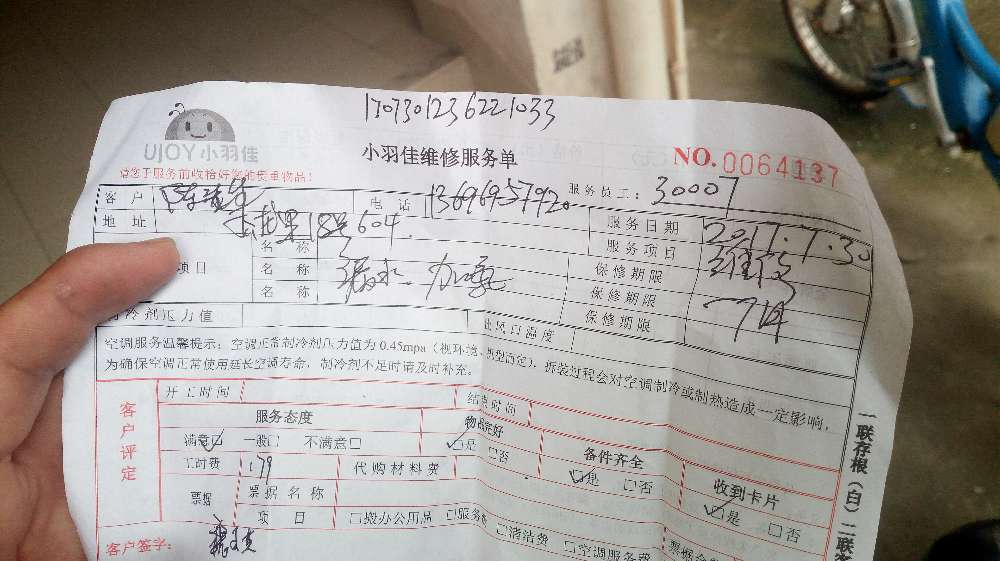 1707301236221033
UJOY 小羽佳
小羽佳维修服务单
NO.0064137
请您于服务前收拾好您的贵重物品!
客户 电话 服务员工: 30007
地址 18号604 服务日期 2017.7.30
名称 服务项目
项目 名称 漏水、加 保修期限
名称 保修期限
保修期限
冷剂压力值 出风口温度
空调服务温馨提示: 空调正常制冷剂压力值为 0.45mpa (视环境、机型而定), 拆装过程会对空调制冷或制热造成一定影响,
为确保空调正常使用延长空调寿命, 制冷剂不足时请及时补充。
客户评定
开工时间 结束时间
服务态度 物品完好 备件齐全 收到卡片
满意□ 一般□ 不满意□ □是 □否 □是 □否 □是 □否
工时费 179 代购材料费
票据 票据名称
项目 □搬办公用品 □服务费 □清洁费 □空调服务费
客户签字:
一联存根(白) 二联